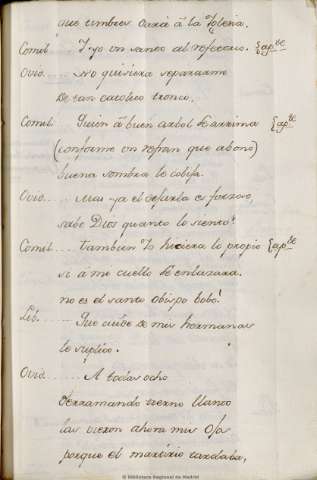 que timbres dará á la Yglesia.
Comil. .... Y yo un santo al refectorio. {ap.te
Ovid. .... No quisiera separarme
de tan catolico tronco.
Comil. .... Quien á buen arbol se arrima {ap.te
(conforme un refran que abonó)
buena sombra le cobija.
Ovid. .... Mas ya el dejarla es forzoso,
sabe Dios quanto lo siento!
Comil. .... tambien Yo hiciera lo propio {ap.te
si á mi cuello se enlazara.
no es el santo Obispo bobo!
Lib. .... Que cuide de mis hermanas
le suplico.
Ovid. .... A todas ocho
derramando tierno llanto
las vieron ahora mis Ojos
porque el martirio tardaba,
© Biblioteca Regional de Madrid